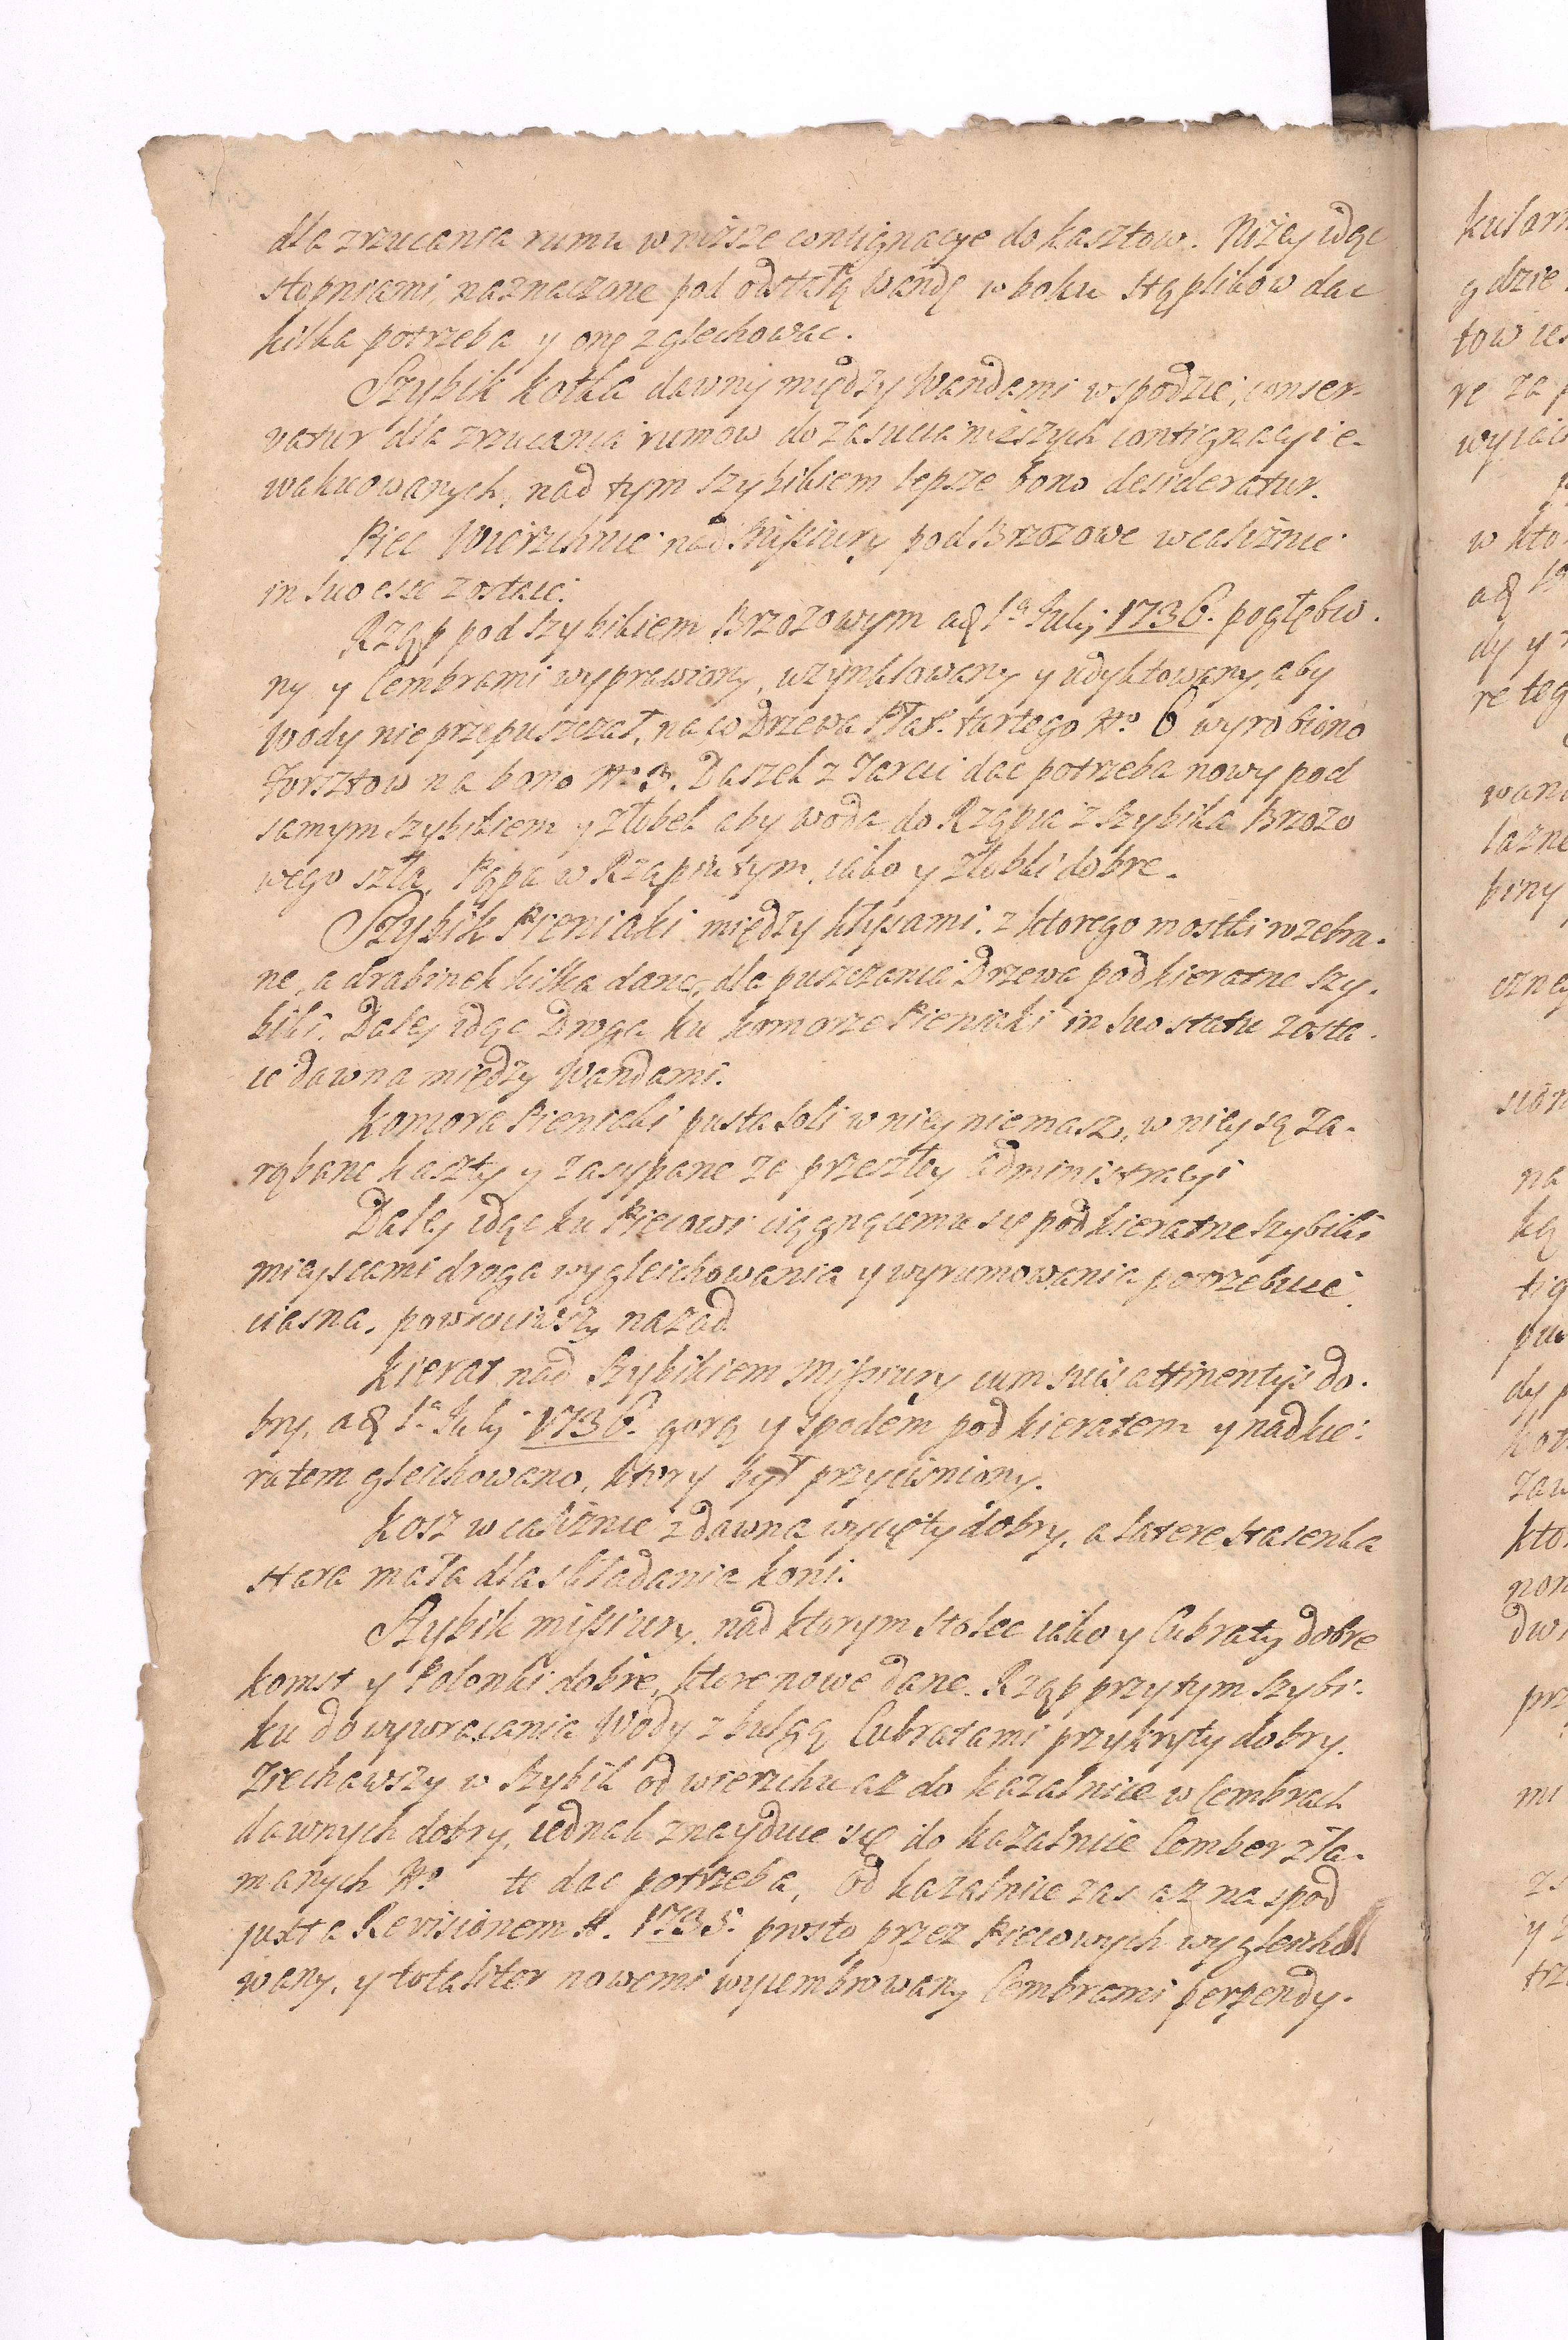 dla zrzucania rumu w niższe contignacye do kasztow. Niżey idąc
stopniami, naznaczone pod odstałą Wandę w boku stęplikow dac
kilka potrzeba y onę zglechowac.
Szybik kotka dawny między Wandami w spodzie, conser-
vatur dla zrzucania rumow do zasucia niższych contignacyi e-
wakuowanych, nad tym szybikiem lepsze bono desideratur.
Piec Wierzchnie nad Miſsiury pod Brzozowe w caliznie
in suo esse zostaie.
Rząp pod Szybikiem Brzozowym ad 1ª Julij 1736. pogłębio.
ny y Cembrami wyprawiony, uzynklowany y udyktowany, aby
Wody nie przepuszczał, na co Drzewa Płat. tartego No. 6 wyrobiono
Forsztow na bono No 3. Daszek z Tarcic dac potrzeba nowy pod
samym szybikiem y Złobek aby woda do Rząpia z szybika Brzozo
wego szła. Pąpa w Rząpiu tym, iako y Złobki dobre.
Szybik Pieniaki między kłysami. z ktorego mostki rozebra-
ne, a drabinek kilka dane, dla puszczania Drzewa pod kieratne szy-
biki. Daley idąc Droga ku komorze Pieniaki in suo statu zosta-
ie dawna między Wandami.
Komora Pieniaki pusta soli w niey niemasz, w niey są za-
rąbane kaszty y zasypane za przeszłey administracyi
Daley idąc ku Piecowi ciągnącemu się pod kieratne szybiki
mieyscami droga wygleichowania y wyrumowania potrzebuie
ciasna. powrociwszy nazad
Kierat nad Szybikiem Miſsiury cum suis attinentijs do-
bry, ad 1ª Julij 1736. gorą y spodem pod kieratem y nad kie-
ratem gleichowano, ktory był przycisniony.
Kosz w caliznie z dawna wycięty dobry, a latere stasenka
stara mała dla składania koni.
Szybik miſsiury, nad ktorym stolec iako y Cubraty dobre
komst y Polonki dobre, ktore nowe dane. Rząp przytym szybi-
ku do wywracania Wody z bulgą Cubratami przykryty dobry.
Ziechawszy w Szybik od wierzchu az do kazalnice w Cembrach
dawnych dobry, iednak znayduie się do kazalnice Cember zła-
manych No te dac potrzeba, Od kazalnice zas az na spod
juxta Revisionem A. 1735. prosto przez Piecowych wygleicho
wany, y totaliter nowemi wycembrowany Cembrami perpendy-